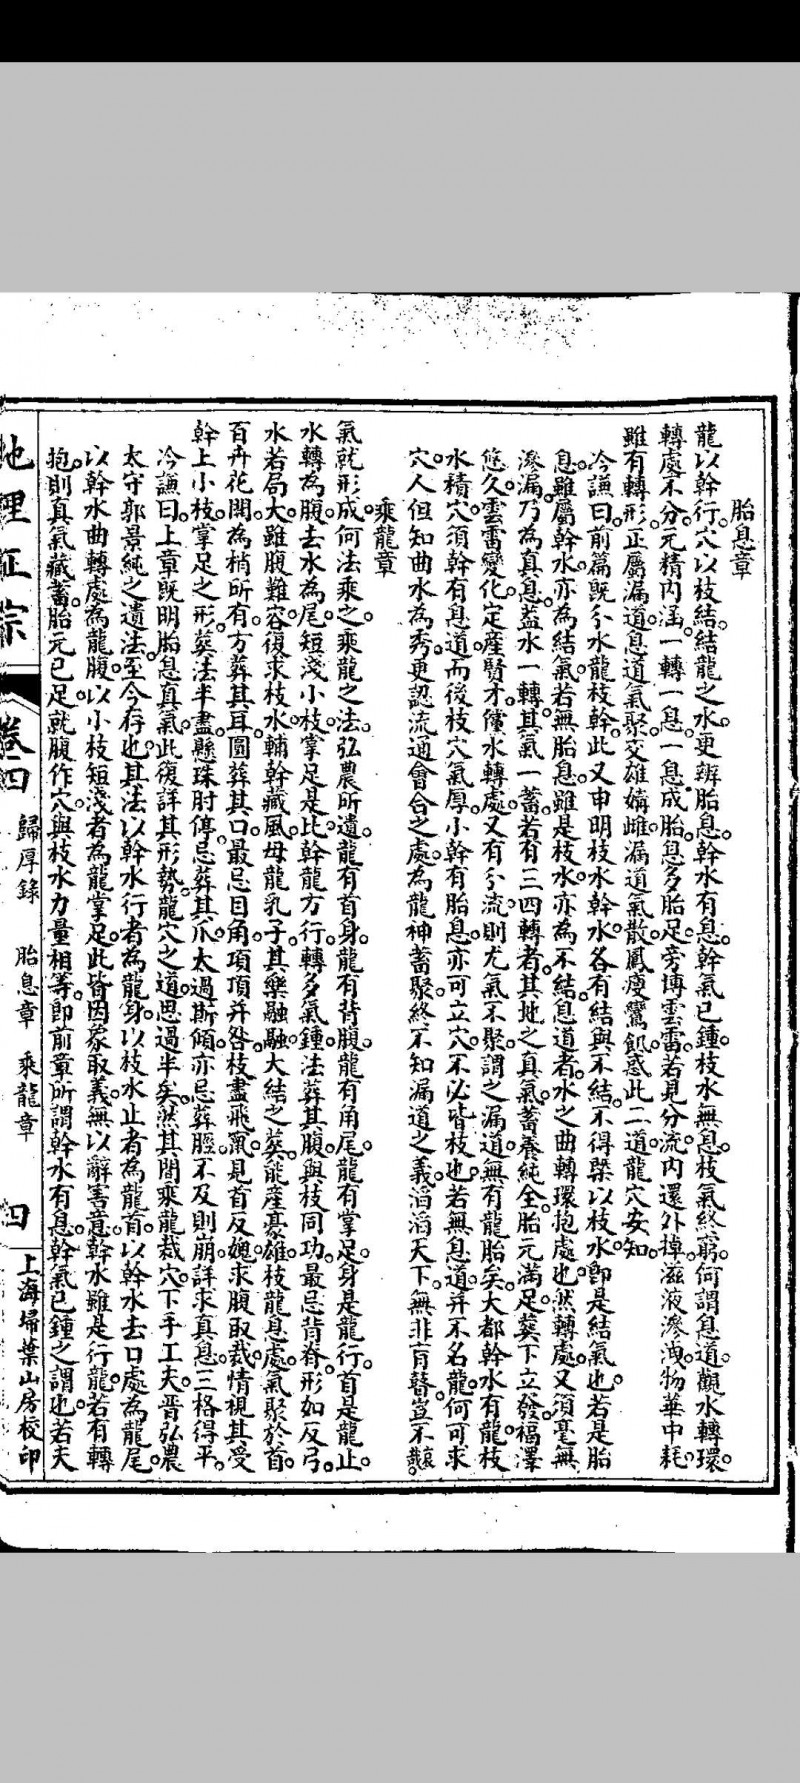 胎息章
龍以幹行。穴以枝結。結龍之水。更辨胎息。幹水有息。幹氣已鍾。枝水無息。枝氣終窮。何謂息道。觀水轉環。
轉處不分。元精內涵。一轉一息。一息成胎。息多胎足。旁博雲雷。若見分流。內還外掉。滋液滲洩。物華中耗。
雖有轉形。正屬漏道。息道氣聚。交雄媾雌。漏道氣散。鳳瘦鸞飢。惑此二道。龍穴安知。
冷謙曰。前篇既分水龍枝幹。此又申明枝水幹水。各有結與不結。不得槩以枝水。卽是結氣也。若是胎
息。雖屬幹水。亦為結氣。若無胎息。雖是枝水。亦為不結。息道者。水之曲轉環抱處也。然轉處又須毫無
滲漏。乃為真息。蓋水一轉。其氣一蓄。若有三四轉者。其地之真氣。蓄養純全。胎元滿足。葬下立發。福澤
悠久。雲雷變化。定產賢才。僅水轉處。又有分流。則尤氣不聚。謂之漏道。無有龍胎矣。大都幹水有龍。枝
水積穴。須幹有息道。而後枝穴氣厚。小幹有胎息。亦可立穴。不必皆枝也。若無息道。並不名龍。何可求
穴。人但知曲水為秀。更認流通會合之處。為龍神蓄聚。終不知漏道之義。滔滔天下。無非盲瞽。豈不哀哉。
乘龍章
氣就形成。何法乘之。乘龍之法。弘農所遺。龍有首身。龍有背腹。龍有角尾。龍有掌足。身是龍行。首是龍止。
水轉為腹。去水為尾。短淺小枝。掌足是比。幹龍方行。轉多氣鍾。法葬其腹。與枝同功。最忌背脊。形如反弓。
水若局大。雖腹難容。復求枝水。輔幹藏風。母龍乳子。其樂融融。大結之葬。能產豪雄。枝龍息處。氣聚於首。
百卉花開。為梢所有。方葬其耳。圓葬其口。最忌目角。項項并咎。枝盡飛竄。見首反媿。求腹取裁。情視其受。
幹上小枝。掌足之形。葬法半盡。懸珠肘停。忌葬其爪。太過斯傾。亦忌葬脛。不及則崩。詳求真息。三格得平。
冷謙曰。上章既明胎息真氣。此復詳其形勢。龍穴之道。思過半矣。然其間乘龍裁穴。下手工夫。晋弘農
太守郭景純之遺法。至今存也。其法以幹水行者為龍身。以枝水止者為龍首。以幹水去口處為龍尾。
以幹水曲轉處為龍腹。以小枝短淺者為龍掌足。此皆因象取義。無以辭害意。幹水雖是行龍。若有轉
抱。則真氣藏蓄。胎元已足。就腹作穴。與枝水力量相等。卽前章所謂幹水有息。幹氣已鍾之謂也。若夫
地理正宗 卷四 歸厚錄 胎息章 乘龍章 四 上海掃葉山房校印